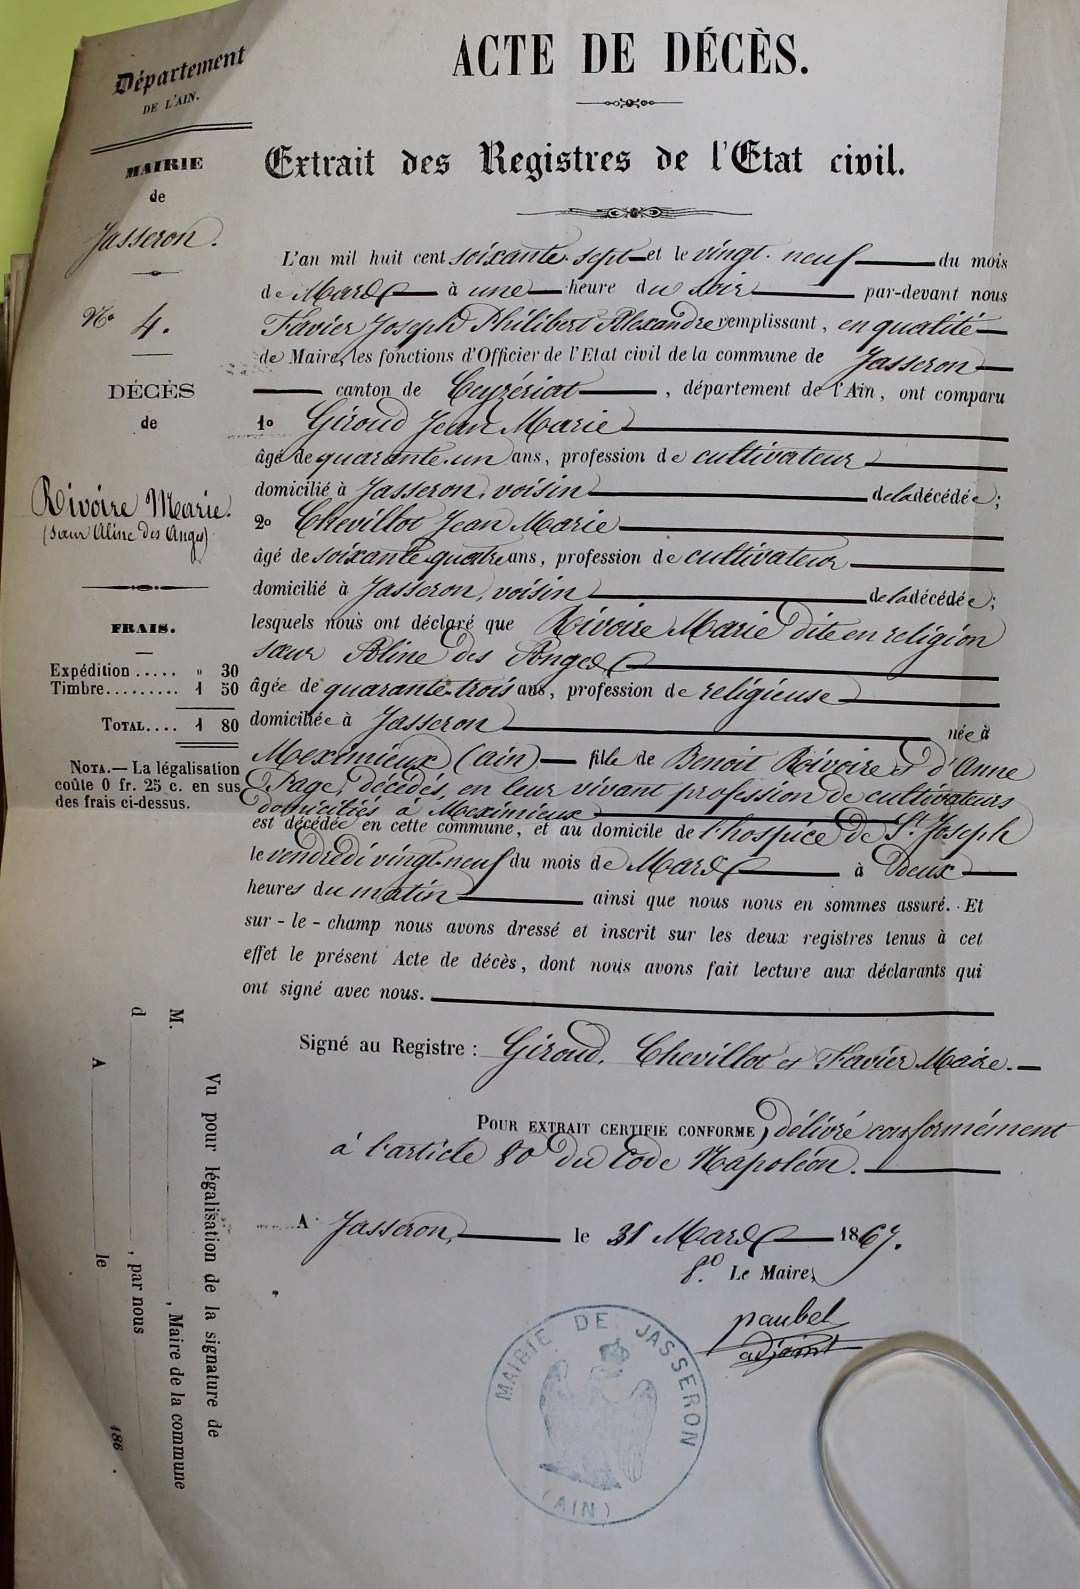 Département
DE L'AIN.
MAIRIE
de
Jasseron.
N° 4.
DÉCÈS
de
Rivoire Marie.
(sœur Aline des Anges)
FRAIS.
Expédition ..... " 30
Timbre......... 1 50
TOTAL.... 1 80
NOTA.— La légalisation
coûte 0 fr. 25 c. en sus
des frais ci-dessus.
ACTE DE DÉCÈS.
Extrait des Registres de l'Etat civil.
L'an mil huit cent soixante-sept et le vingt-neuf du mois
de Mars à une heure du soir par-devant nous
Favier Joseph Philibert Alexandre remplissant, en qualité
de Maire, les fonctions d'Officier de l'Etat civil de la commune de Jasseron
canton de Ceyzériat, département de l'Ain, ont comparu
1° Giroud Jean Marie
âgé de quarante-un ans, profession de cultivateur
domicilié à Jasseron, voisin de la décédée;
2° Chevillot Jean Marie
âgé de soixante-quatre ans, profession de cultivateur
domicilié à Jasseron, voisin de la décédée;
lesquels nous ont déclaré que Rivoire Marie dite en religion
sœur Aline des Anges
âgée de quarante-trois ans, profession de religieuse
domiciliée à Jasseron née à
Meximieux (ain) fille de Benoit Rivoire et d'Anne
Page, décédés, en leur vivant profession de cultivateurs
domiciliés à Meximieux
est décédée en cette commune, et au domicile de l'hospice de St. Joseph
le vendredi vingt-neuf du mois de Mars à Deux
heures du matin ainsi que nous nous en sommes assuré. Et
sur-le-champ nous avons dressé et inscrit sur les deux registres tenus à cet
effet le présent Acte de décès, dont nous avons fait lecture aux déclarants qui
ont signé avec nous.
Signé au Registre : Giroud, Chevillot et Favier Maire.
POUR EXTRAIT CERTIFIE CONFORME, délivré conformément
à l'article 80 du Code Napoléon.
A Jasseron, le 31 Mars 1867.
Le Maire,
paubel
adjoint
MAIRIE DE JASSERON
(AIN)
Vu pour légalisation de la signature de
M. , Maire de la commune
d , par nous
A le 186 .